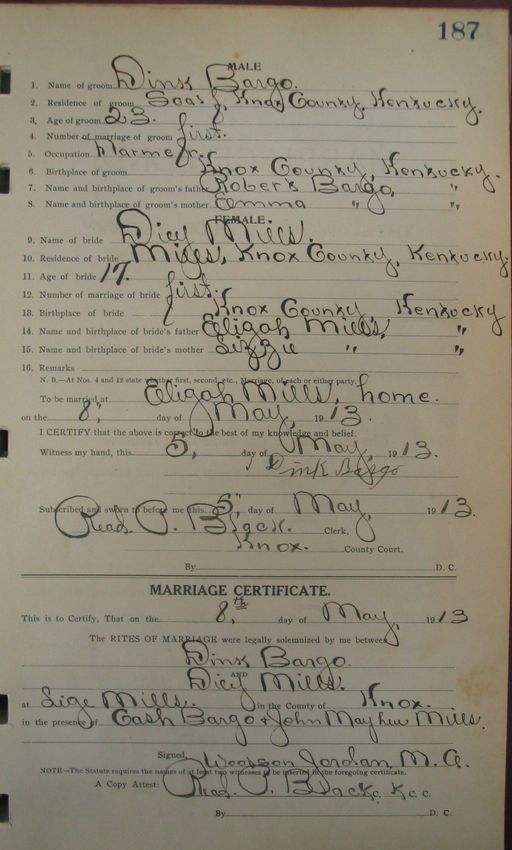 187
MALE
1. Name of groom Dink Bargo.
2. Residence of groom Knox County, Kentucky.
3. Age of groom 23.
4. Number of marriage of groom first.
5. Occupation Farmer.
6. Birthplace of groom Knox County, Kentucky.
7. Name and birthplace of groom's father Robert Bargo, "
8. Name and birthplace of groom's mother Emma " "
FEMALE.
9. Name of bride Dicy Mills.
10. Residence of bride Mills, Knox County, Kentucky,
11. Age of bride 17.
12. Number of marriage of bride first.
13. Birthplace of bride Knox County, Kentucky
14. Name and birthplace of bride's father Eligah Mills, "
15. Name and birthplace of bride's mother Lizzie " "
16. Remarks
N. B.—At Nos. 4 and 12 state whether first, second, etc., Marriage, of each or either party.
To be married at Eligah Mills, home.
on the 8, day of May, 1913.
I CERTIFY that the above is correct to the best of my knowledge and belief.
Witness my hand, this 5, day of May, 1913.
Dink Bargo
Subscribed and sworn to before me this 5" day of May, 1913.
Read P. Black. Clerk,
Knox. County Court.
By D. C.
MARRIAGE CERTIFICATE.
This is to Certify, That on the 8,th day of May, 1913
The RITES OF MARRIAGE were legally solemnized by me between
Dink Bargo.
AND
Dicy Mills.
at Lige Mills. in the County of Knox.
in the presence of Cash Bargo & John Mayhue Mills.
Signed, Woodson Jordan, M. G.
NOTE—The Statute requires the names of at least two witnesses to be inserted in the foregoing certificate.
A Copy Attest: Read P. Black C. K. C. C.
By D. C.